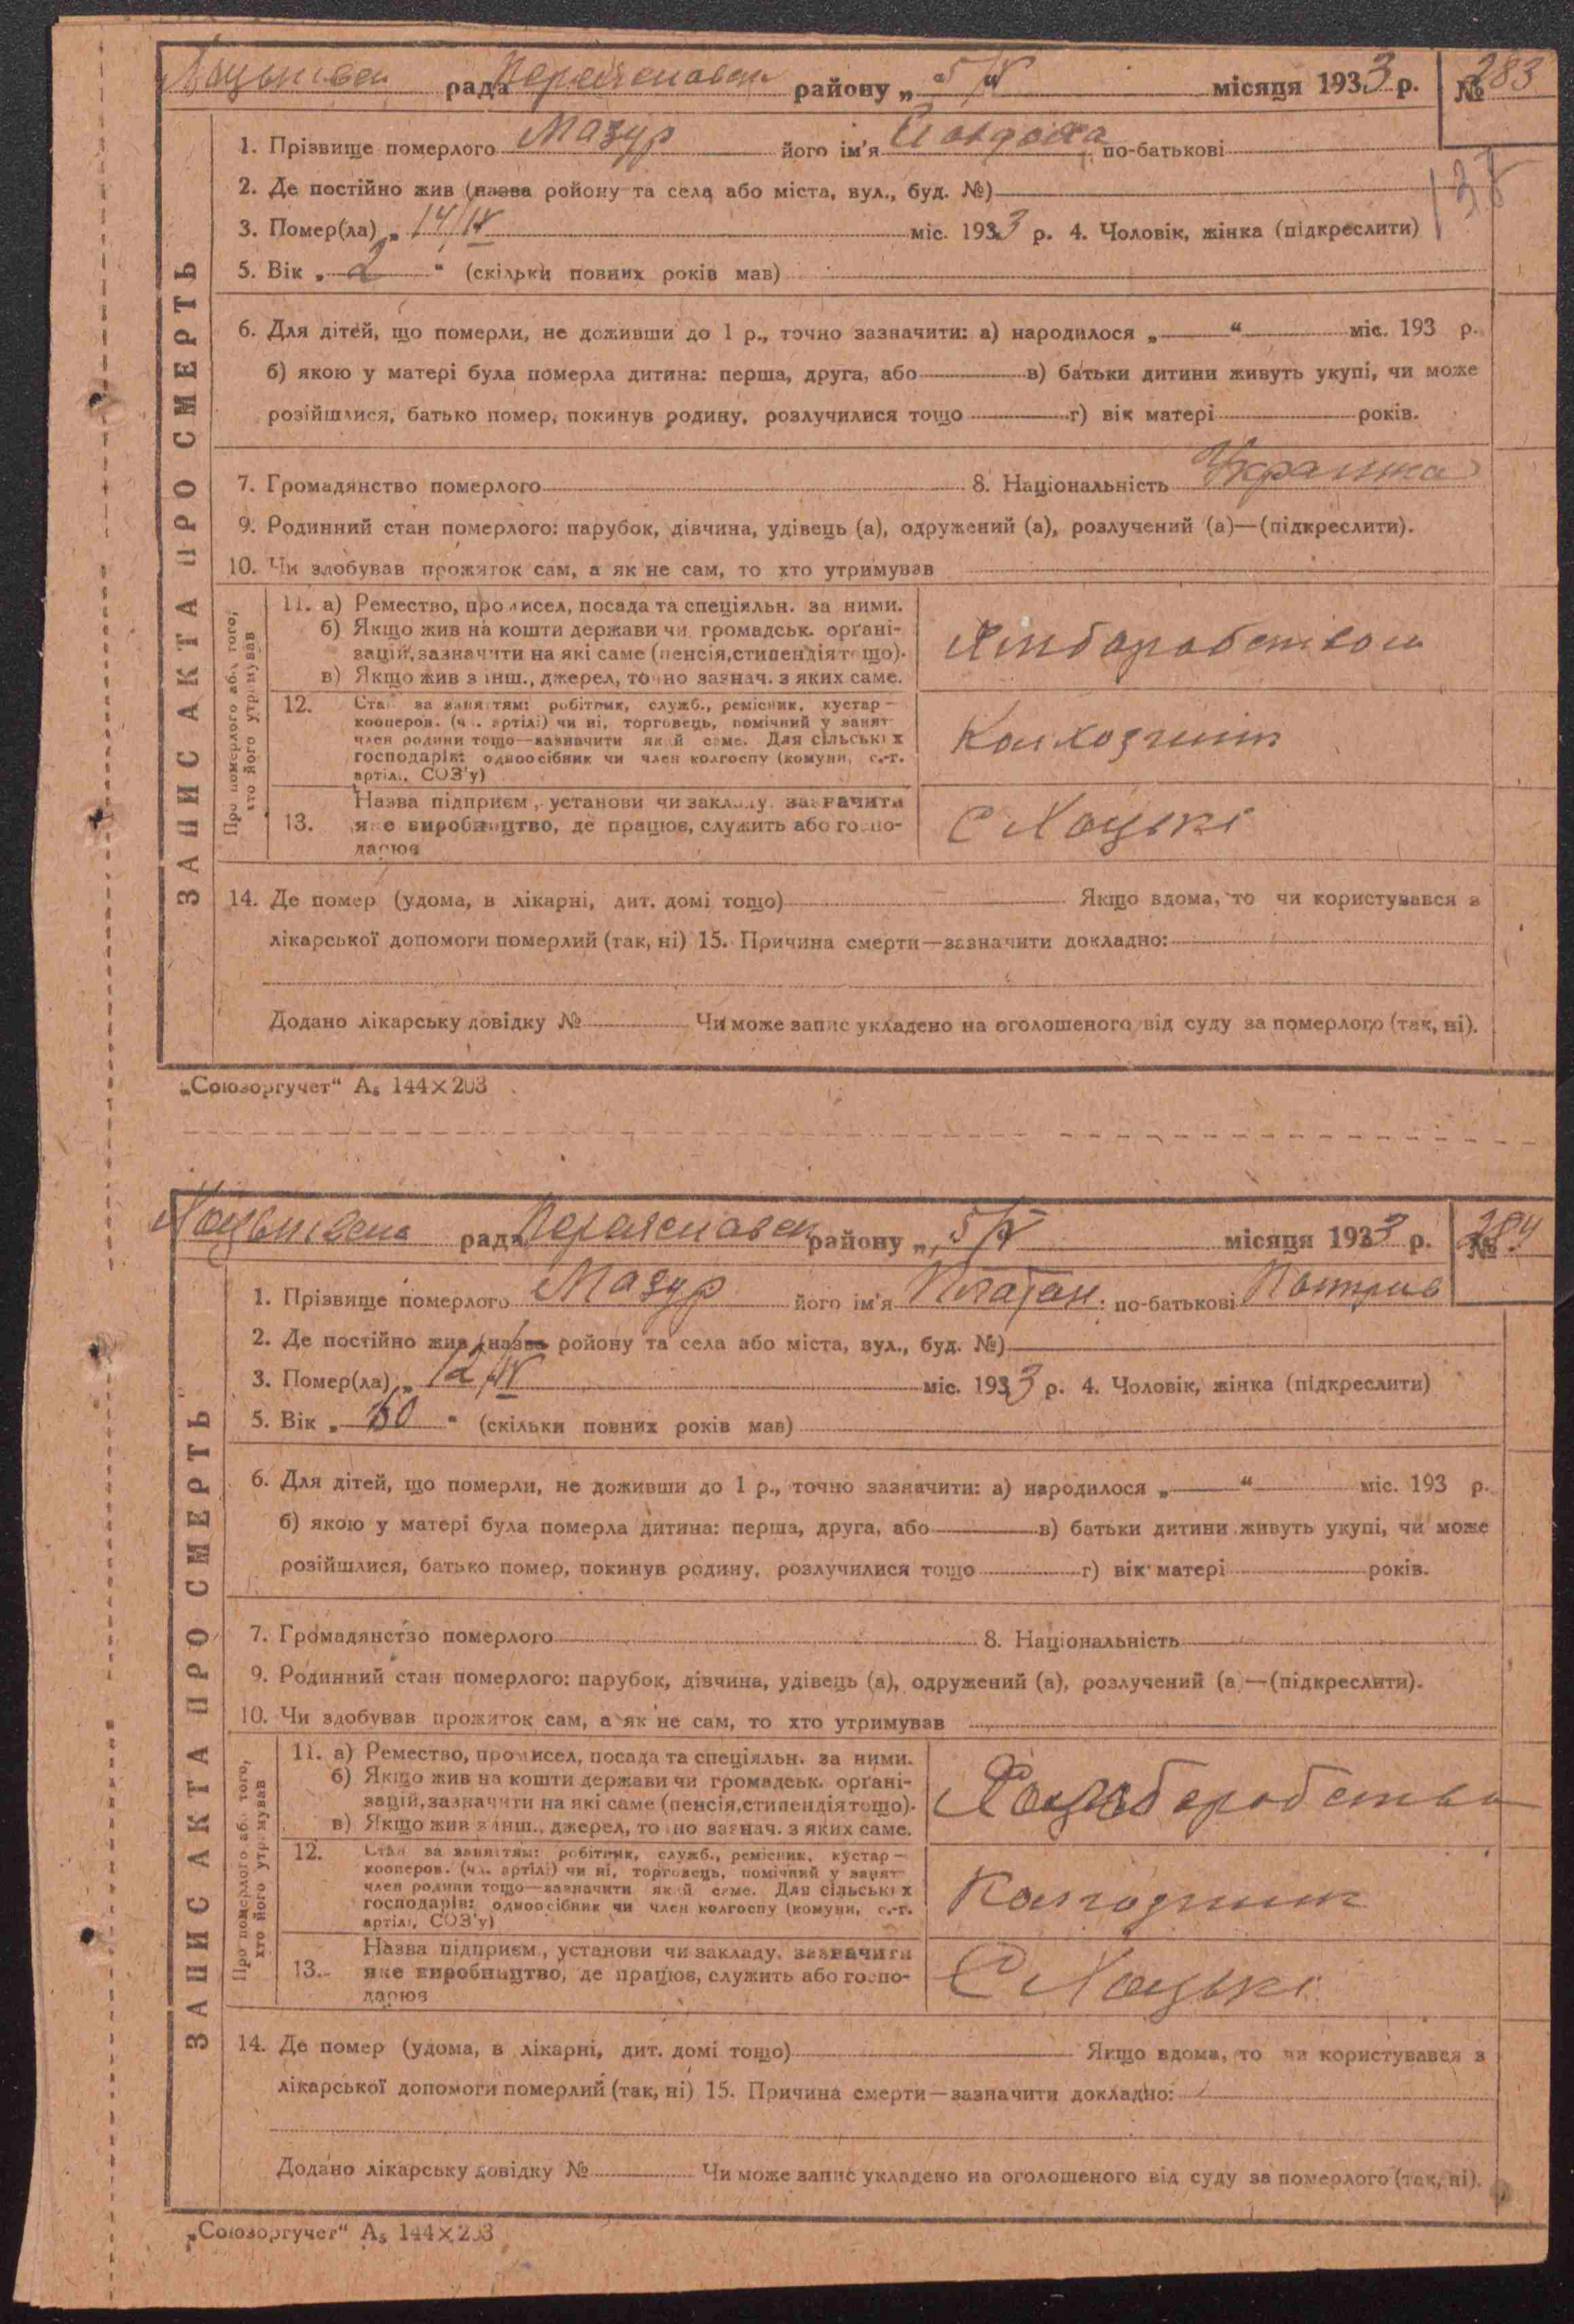 рада Переяславськ району „ 5/V місяця 1933 р. № 283
1. Прізвище померлого Мазур його ім'я Явдоха по-батькові
2. Де постійно жив (назва ройону та села або міста, вул., буд. №)
3. Помер(ла) „ 14/IV міс. 1933 р. 4. Чоловік, жінка (підкреслити)
5. Вік „ 2 " (скільки повних років мав)
6. Для дітей, що померли, не доживши до 1 р., точно зазначити: а) народилося „ “ міс. 193 р.
б) якою у матері була померла дитина: перша, друга, або в) батьки дитини живуть укупі, чи може
розійшлися, батько помер, покинув родину, розлучилися тощо г) вік матері років.
7. Громадянство померлого 8. Національність
9. Родинний стан померлого: парубок, дівчина, удівець (а), одружений (а), розлучений (а)—(підкреслити).
10. Чи здобував прожиток сам, а як не сам, то хто утримував
ЗАПИС АКТА ПРО СМЕРТЬ
Про померлого або того,
хто його утримував
11. а) Ремество, промисел, посада та спеціяльн. за ними.
б) Якщо жив на кошти держави чи громадськ. органі-
зацій, зазначити на які саме (пенсія, стипендія тощо).
в) Якщо жив з інш., джерел, точно зазнач. з яких саме.
Хліборобством
12. Стан за заняттям: робітник, служб., ремісник, кустар—
кооперов. (чл. артілі) чи ні, торговець, помічний у занят
член родини тощо—зазначити який саме. Для сільських
господарів: одноосібник чи член колгоспу (комуни, с.-г.
артілі, СОЗ'у)
Колхозник
Назва підприєм., установи чи закладу, зазначити
13. яке виробництво, де працює, служить або госпо-
дарює
С Хоцькі
14. Де помер (удома, в лікарні, дит. домі тощо) Якщо вдома, то чи користувався з
лікарської допомоги померлий (так, ні) 15. Причина смерти—зазначити докладно:
Додано лікарську довідку № Чи може запис укладено на оголошеного від суду за померлого (так, ні).
„Союзоргучет“ А₅ 144×203
рада Переяславськ району „ 5/V місяця 1933 р. № 284
1. Прізвище померлого Мазур його ім'я по-батькові
2. Де постійно жив (назва ройону та села або міста, вул., буд. №)
3. Помер(ла) „ 12/IV міс. 1933 р. 4. Чоловік, жінка (підкреслити)
5. Вік „ " (скільки повних років мав)
6. Для дітей, що померли, не доживши до 1 р., точно зазначити: а) народилося „ “ міс. 193 р.
б) якою у матері була померла дитина: перша, друга, або в) батьки дитини живуть укупі, чи може
розійшлися, батько помер, покинув родину, розлучилися тощо г) вік матері років.
7. Громадянство померлого 8. Національність
9. Родинний стан померлого: парубок, дівчина, удівець (а), одружений (а), розлучений (а)—(підкреслити).
10. Чи здобував прожиток сам, а як не сам, то хто утримував
ЗАПИС АКТА ПРО СМЕРТЬ
Про померлого або того,
хто його утримував
11. а) Ремество, промисел, посада та спеціяльн. за ними.
б) Якщо жив на кошти держави чи громадськ. органі-
зацій, зазначити на які саме (пенсія, стипендія тощо).
в) Якщо жив з інш., джерел, точно зазнач. з яких саме.
12. Стан за заняттям: робітник, служб., ремісник, кустар—
кооперов. (чл. артілі) чи ні, торговець, помічний у занят
член родини тощо—зазначити який саме. Для сільських
господарів: одноосібник чи член колгоспу (комуни, с.-г.
артілі, СОЗ'у)
Колгозник
Назва підприєм., установи чи закладу, зазначити
13. яке виробництво, де працює, служить або госпо-
дарює
С Хоцькі
14. Де помер (удома, в лікарні, дит. домі тощо) Якщо вдома, то чи користувався з
лікарської допомоги померлий (так, ні) 15. Причина смерти—зазначити докладно:
Додано лікарську довідку № Чи може запис укладено на оголошеного від суду за померлого (так, ні).
„Союзоргучет“ А₅ 144×203